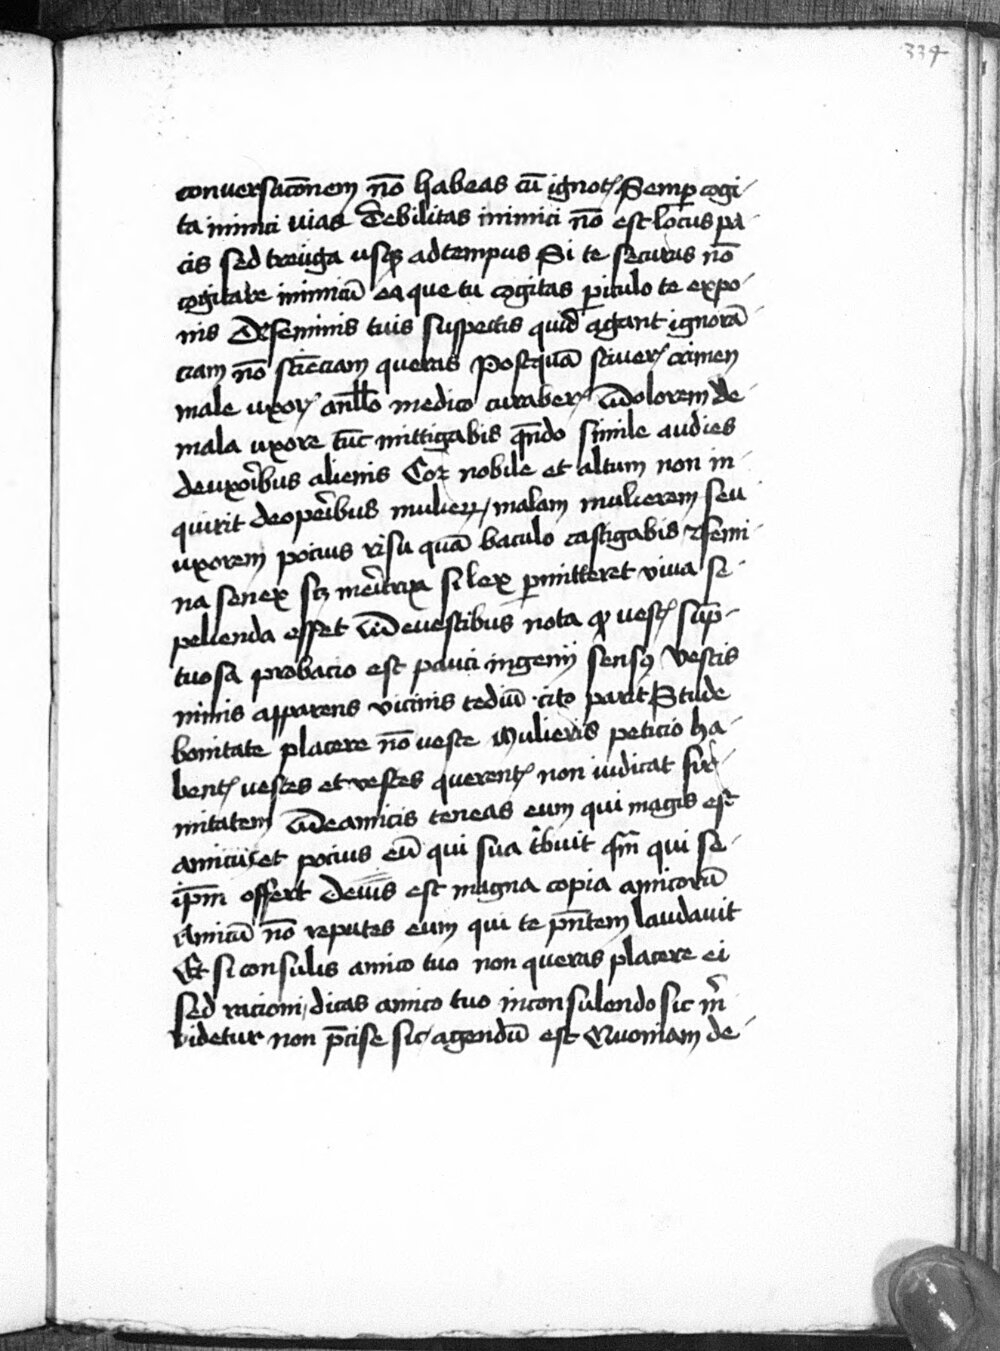 334
conversacōnem nō habeas cū ignotꝭ Semp cogi-
ta inimici vias Debilitas inimici nō est locus pa-
cis sed treuga usqꝫ ad tempus Si te securus nō
cogitare inimicū ea que tu cogitas piculo te expo-
nis De feminis tuis suspectis quid agant ignorā-
ciam nō sciēciam queras Postquā sciuerꝭ crimen
male uxorꝭ a nullo medico curaberꝭ dolorem de
mala uxore tūc mittigabis qn̄do simile audies
de uxoribus alienis Cor nobile et altum non in-
quirit de opibus mulierꝝ malam mulierem seu
uxorem pocius risu quā baculo castigabis femi-
na senex sꝫ meretrix si lex pmitteret viva se-
pelienda esset De vestibus nota qꝫ vestꝭ sūp-
tuosa probacio est pauci ingenij sensꝰ Vestis
nimis apparens vicinis tediū cito parit Stude
bonitate placere nō veste Mulieris peticio ha-
bentꝭ vestes et vestes querentꝭ non iudicat fir-
mitatem De amicis teneas eum qui magis est
amicus et pocius eū qui sua tribuit qm̄ qui se-
ip̄m offert de vilis est magna copia amicorū
Amicū nō reputes eum qui te pn̄tem laudavit
Et si consulis amico tuo non queras placere ei
sed racioni dicas amico tuo in consulendo sic m̄
videtur non p̄cise sic agendū est Quoniam de-